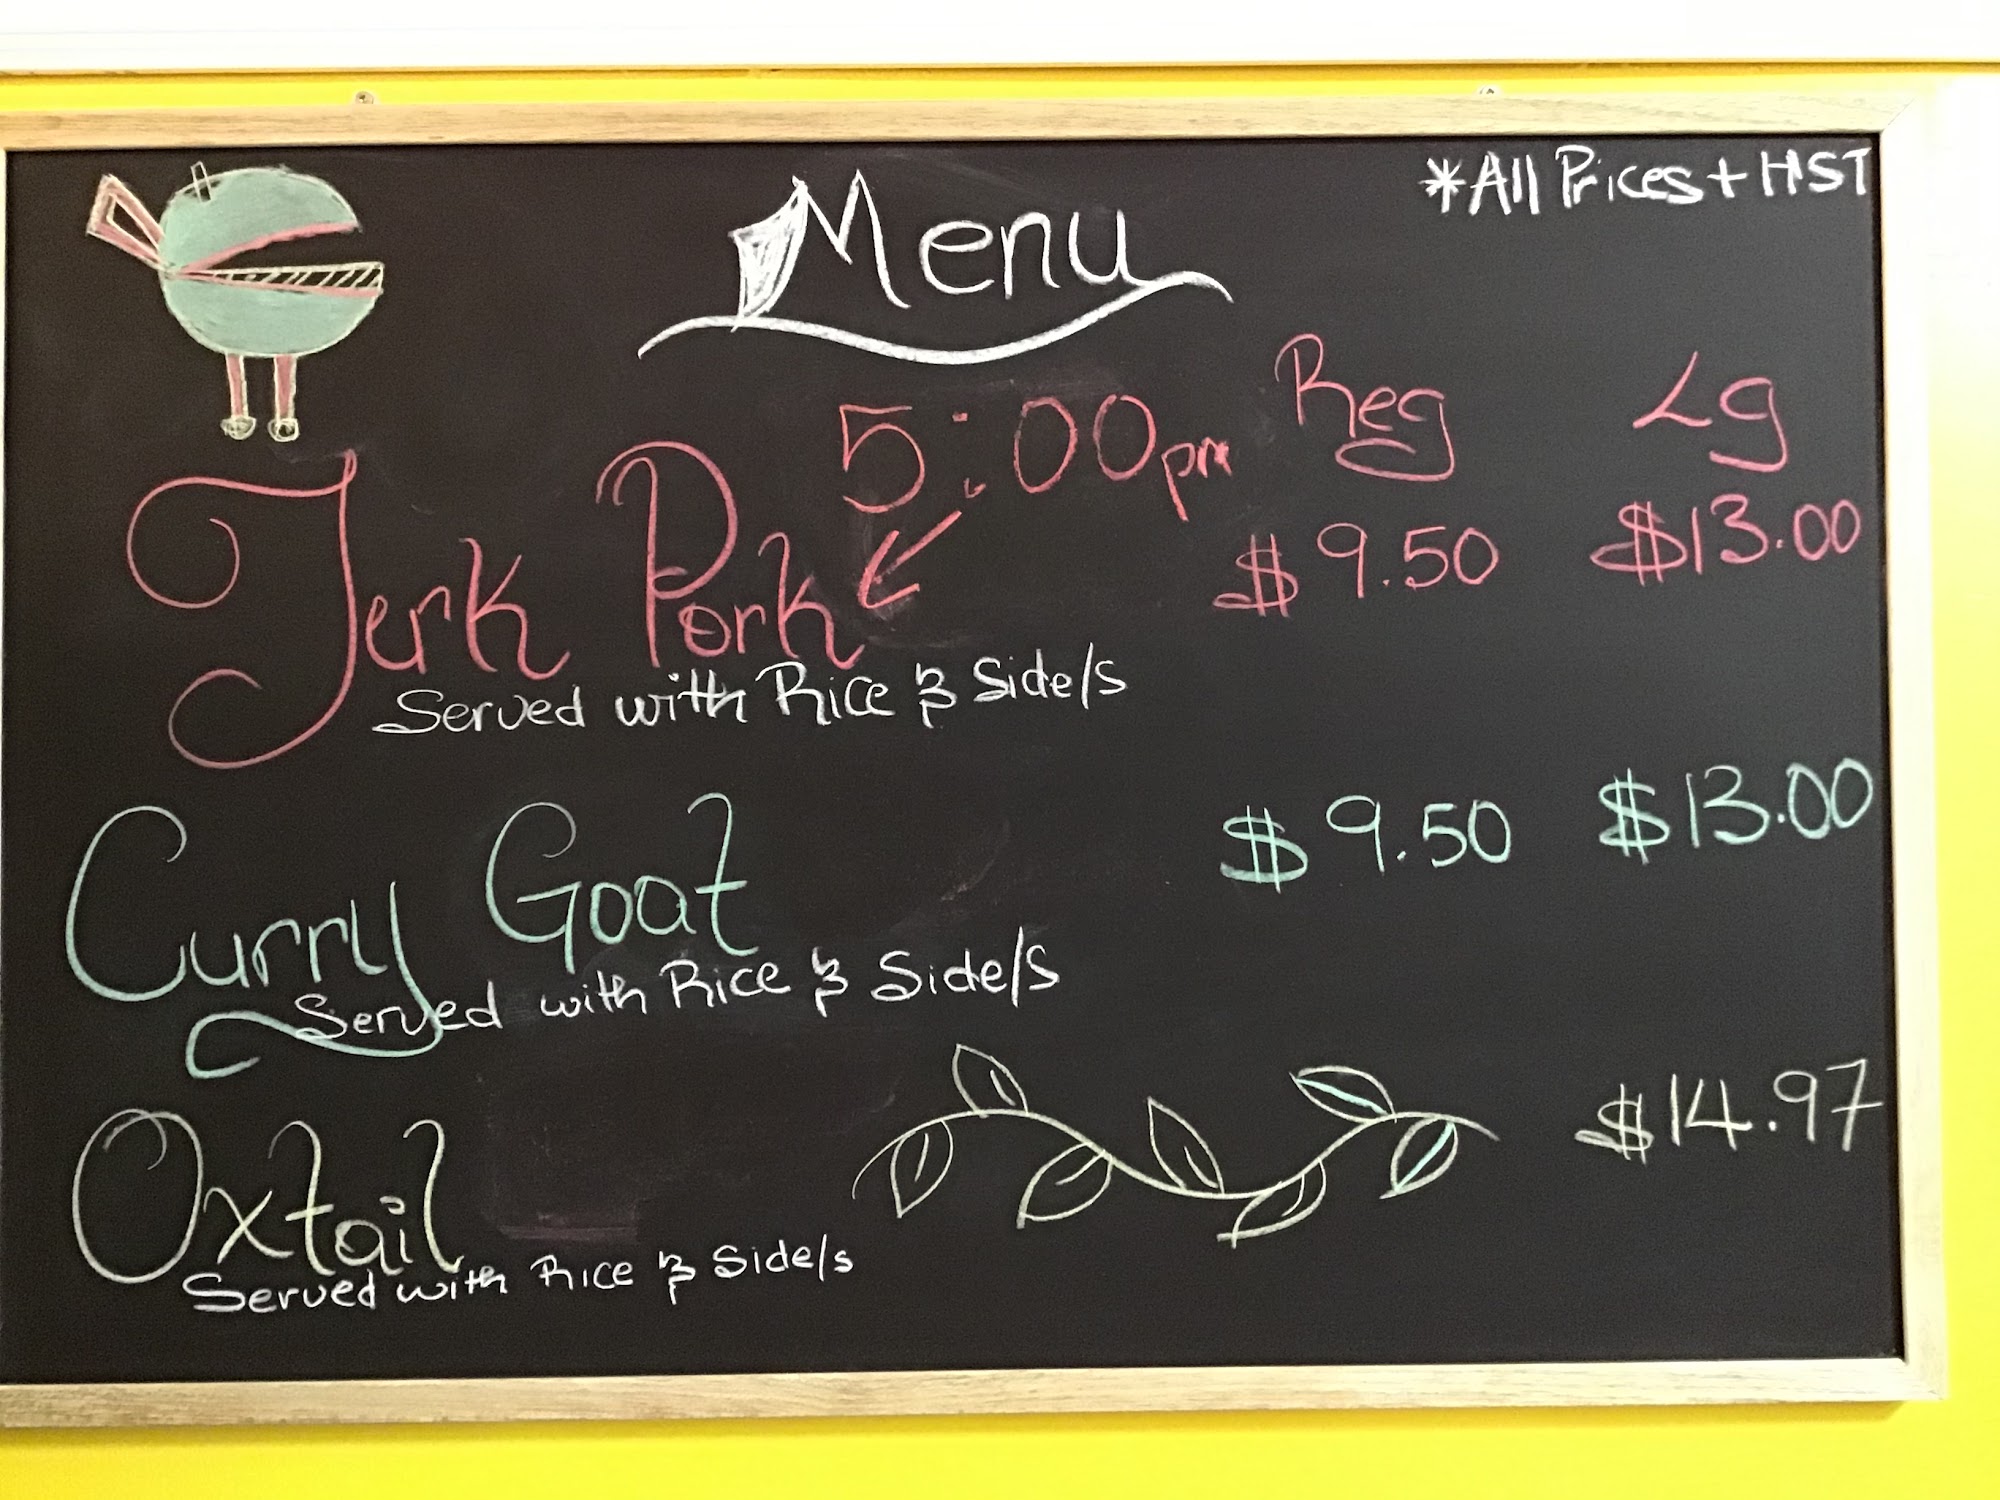 *All Prices + HST
Menu
Reg Lg
5:00pm
Jerk Pork $9.50 $13.00
Served with Rice & Side/s
Curry Goat $9.50 $13.00
Served with Rice & Side/s
Oxtail $14.97
Served with Rice & Side/s